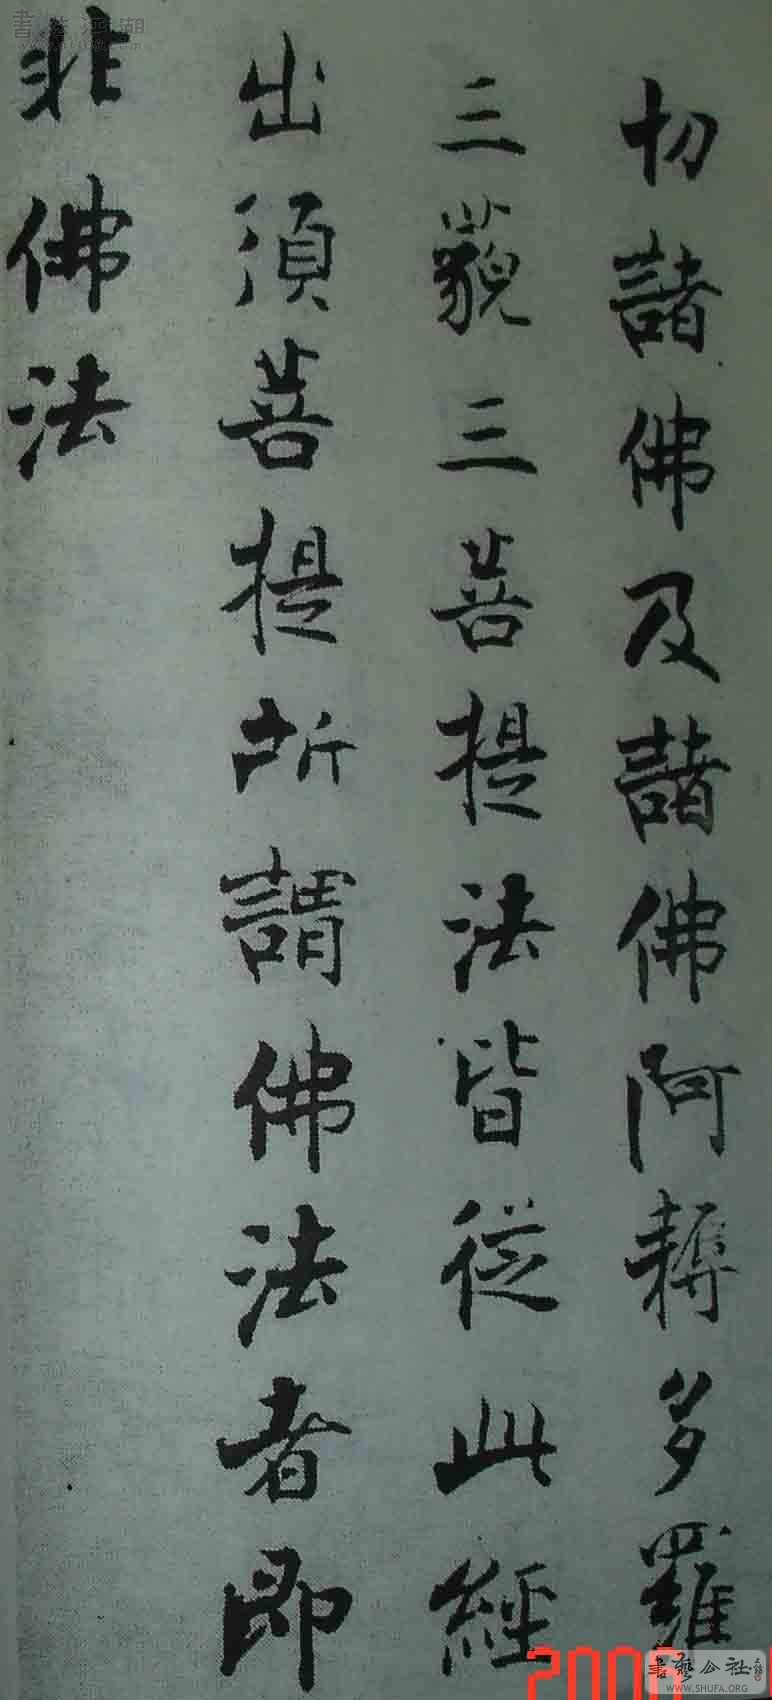 切諸佛及諸佛阿耨多羅
三藐三菩提法皆從此經
出須菩提所謂佛法者即
非佛法
書法江湖
書藝公社
WWW.SHUFA.ORG